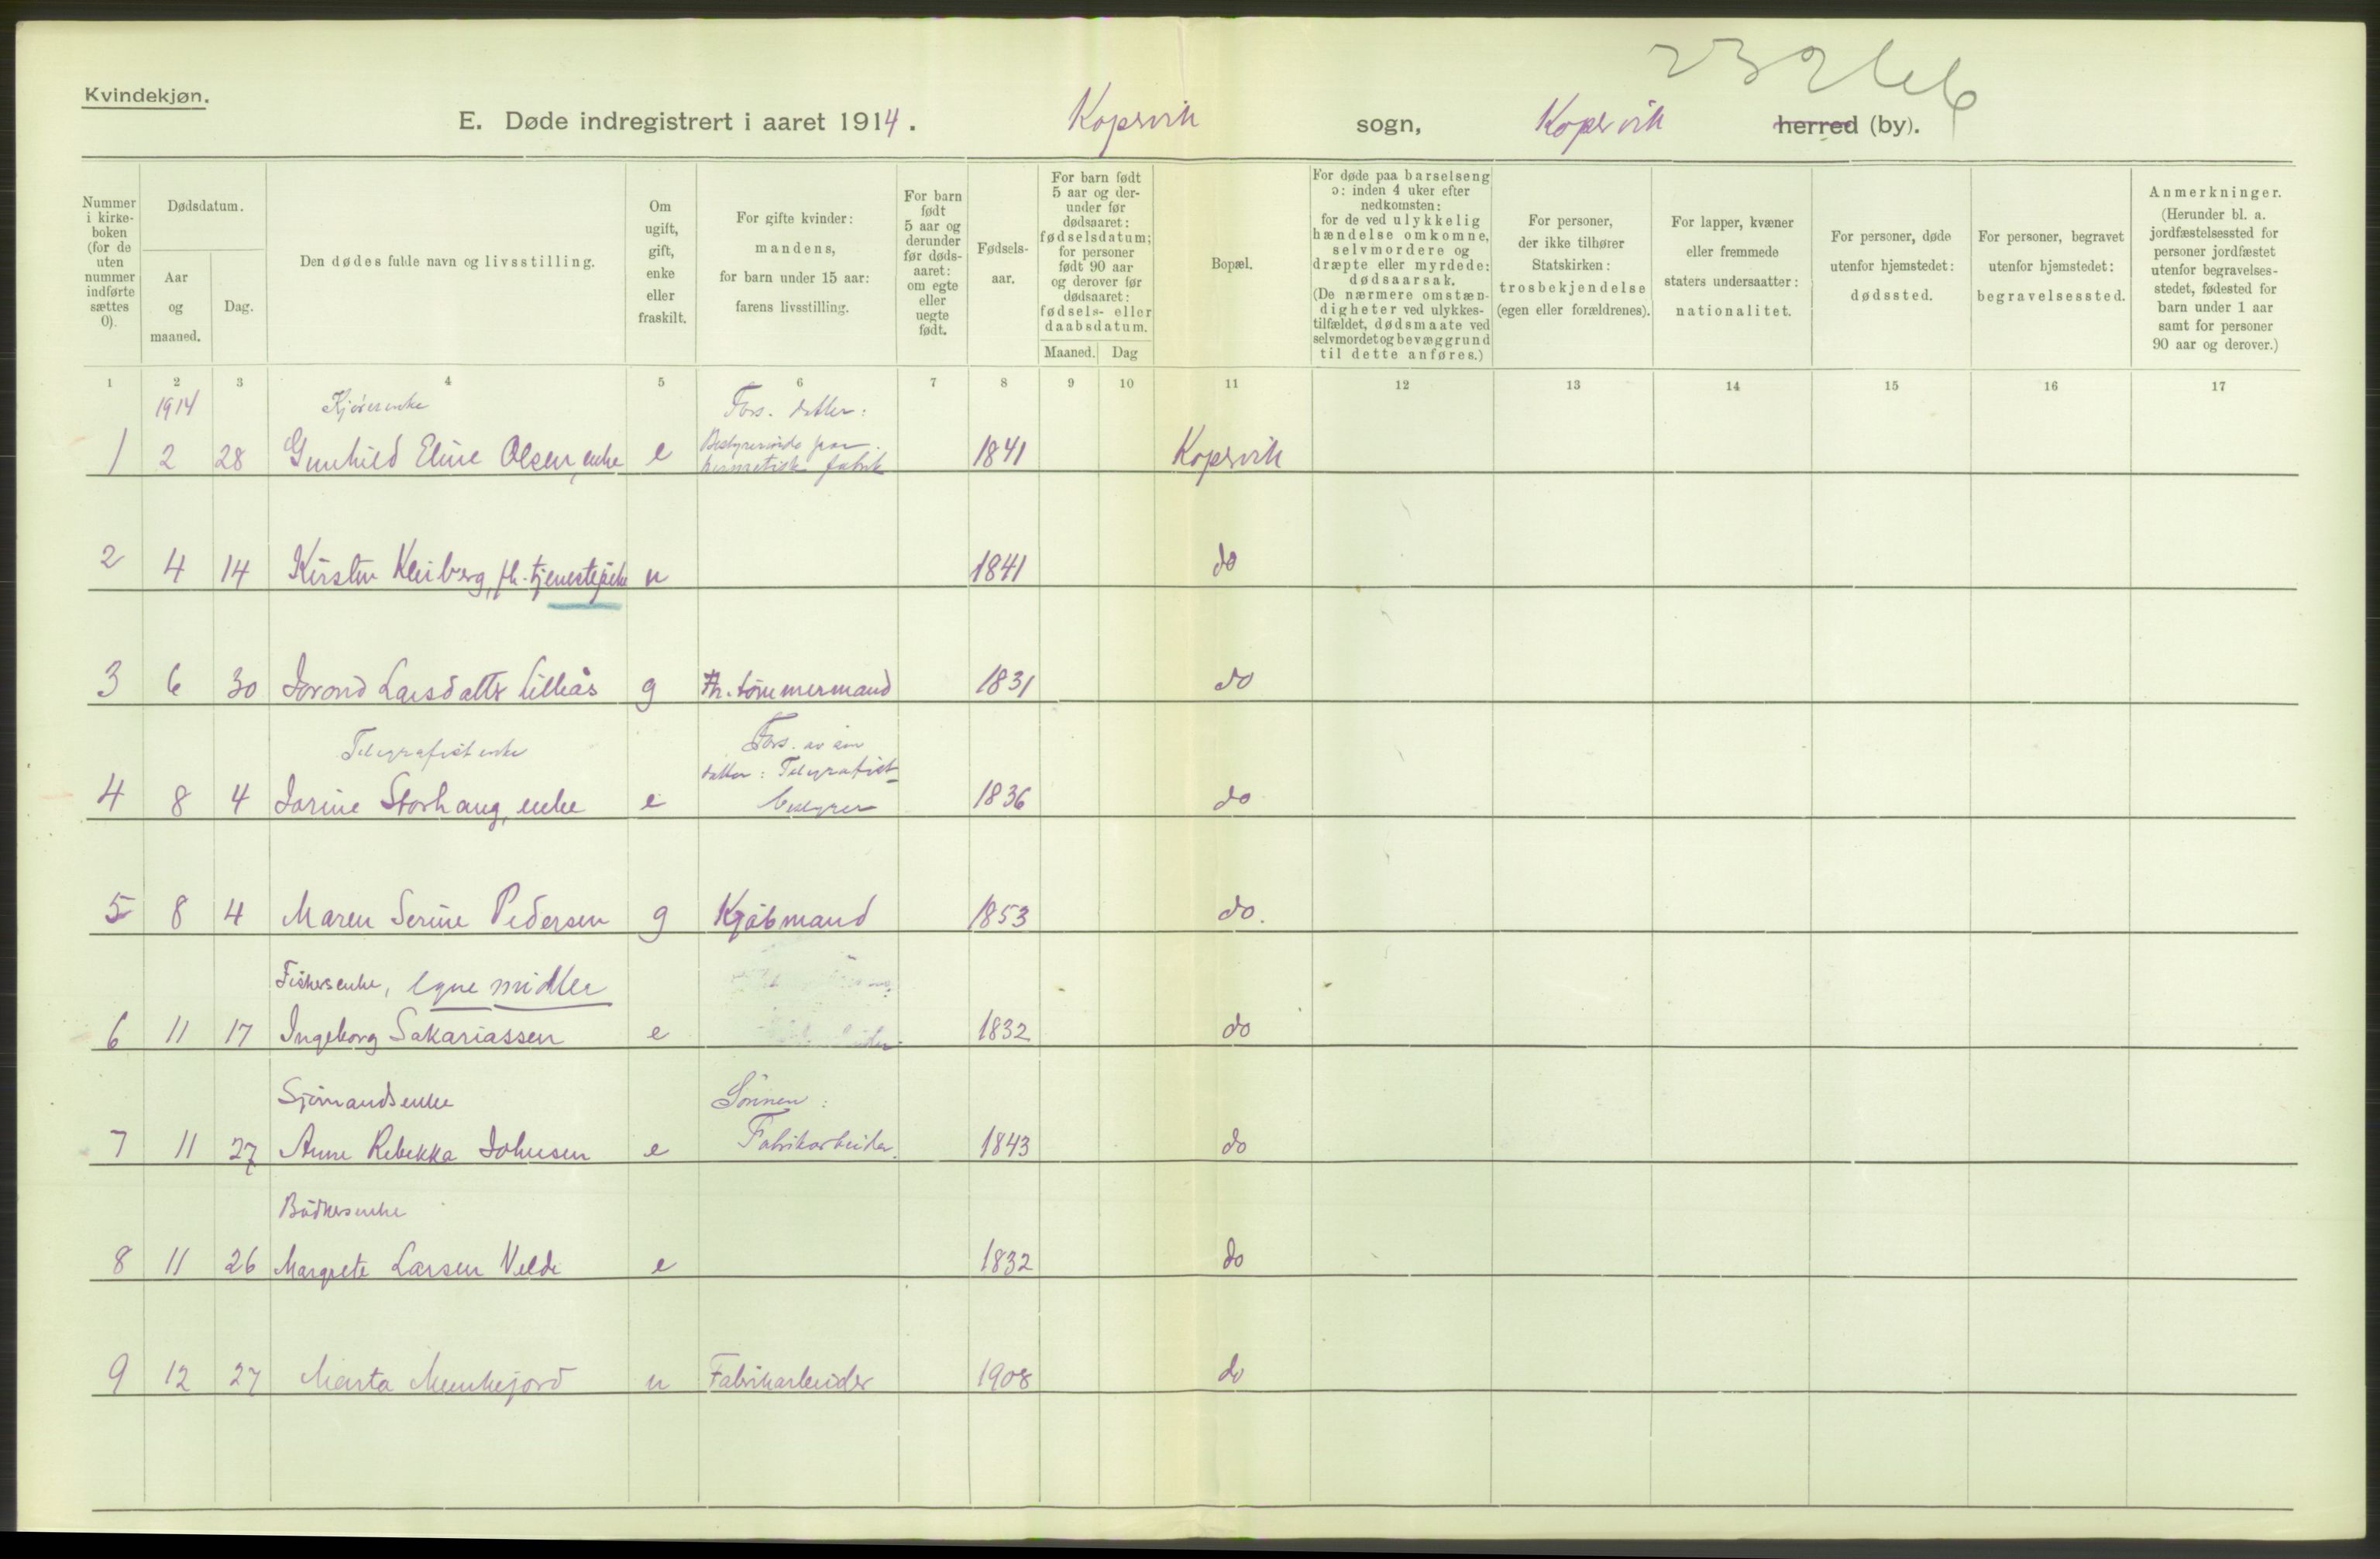 23266
Kvindekjøn.
E. Døde indregistrert i aaret 1914. Kopervik sogn, Kopervik herred (by).
Nummer i kirkeboken (for de uten nummer indførte sættes 0).
Dødsdatum.
Aar og maaned.
Dag.
Den dødes fulde navn og livsstilling.
Om ugift, gift, enke eller fraskilt.
For gifte kvinder: mandens, for barn under 15 aar: farens livsstilling.
For barn født 5 aar og derunder før dødsaaret: om egte eller uegte født.
Fødselsaar.
For barn født 5 aar og derunder før dødsaaret: fødselsdatum; for personer født 90 aar og derover før dødsaaret: fødsels- eller daabsdatum.
Maaned. Dag
Bopæl.
For døde paa barselseng ɔ: inden 4 uker efter nedkomsten: for de ved ulykkelig hændelse omkomne, selvmordere og dræpte eller myrdede: dødsaarsak. (De nærmere omstændigheter ved ulykkestilfældet, dødsmaate ved selvmordet og bevæggrund til dette anføres.)
For personer, der ikke tilhører Statskirken: trosbekjendelse (egen eller forældrenes).
For lapper, kvæner eller fremmede staters undersaatter: nationalitet.
For personer, døde utenfor hjemstedet: dødssted.
For personer, begravet utenfor hjemstedet: begravelsessted.
Anmerkninger. (Herunder bl. a. jordfæstelsessted for personer jordfæstet utenfor begravelsesstedet, fødested for barn under 1 aar samt for personer 90 aar og derover.)
1 2 3 4 5 6 7 8 9 10 11 12 13 14 15 16 17
1914 Kjørerenke Fors. datter:
Bestyrerinde paa
1 2 28 Gunhild Eline Olsen, enke e hermetisk fabrik 1841 Kopervik
2 4 14 Kirsten Kleiberg, fh. tjenestepike u 1841 do
3 6 30 Jorond Larsdatter Lilleås g Fh. tømmermand 1831 do
Telegrafistenke Fors. av sin
datter: Telegrafist-
4 8 4 Jorine Storhaug, enke e bestyrer 1836 do
5 8 4 Maren Serine Pedersen g Kjøbmand 1853 do.
Fiskersenke, egne midler
6 11 17 Ingeborg Sakariassen e 1832 do
Sjømandsenke Sønnen:
7 11 27 Anne Rebekka Johnsen e Fabrikarbeider. 1843 do
Bødkersenke
8 11 26 Margrete Larsen Velde e 1832 do
9 12 27 Marta Munkejord u Fabrikarbeider 1908 do